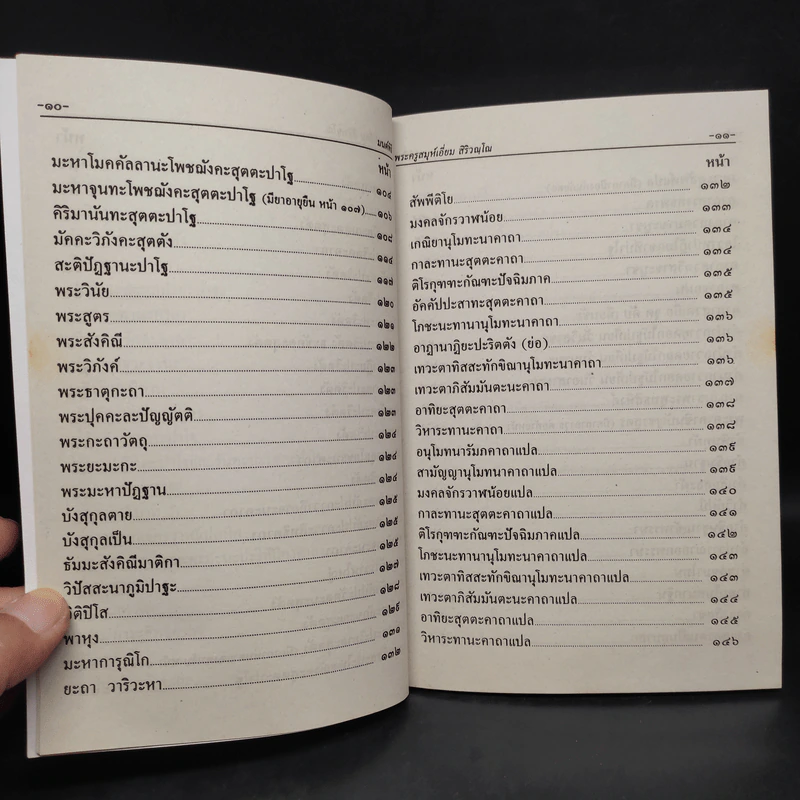 -๑๐-
หน้า
มะหาโมคคัลลานะโพชฌังคะสุตตะปาโฐ ๑๐๔
มะหาจุนทะโพชฌังคะสุตตะปาโฐ (มียาอายุยืน หน้า ๑๐๗) ๑๐๖
คิริมานันทะสุตตะปาโฐ ๑๐๘
มัคคะวิภังคะสุตตัง ๑๑๔
สะติปัฏฐานะปาโฐ ๑๑๗
พระวินัย ๑๒๐
พระสูตร ๑๒๑
พระสังคิณี ๑๒๒
พระวิภังค์ ๑๒๓
พระธาตุกะถา ๑๒๓
พระปุคคะละปัญญัตติ ๑๒๓
พระกะถาวัตถุ ๑๒๔
พระยะมะกะ ๑๒๔
พระมะหาปัฏฐาน ๑๒๔
บังสุกุลตาย ๑๒๕
บังสุกุลเป็น ๑๒๕
ธัมมะสังคิณีมาติกา ๑๒๗
วิปัสสะนาภูมิปาฐะ ๑๒๘
อิติปิโส ๑๒๙
พาหุง ๑๓๑
มะหาการุณิโก ๑๓๒
ยะถา วาริวะหา
พระครูสมุห์เอี่ยม สิริวณฺโณ -๑๑-
หน้า
สัพพีติโย ๑๓๒
มงคลจักรวาฬน้อย ๑๓๓
เกณิยานุโมทะนาคาถา ๑๓๔
กาละทานะสุตตะคาถา ๑๓๔
ติโรกุฑฑะกัณฑะปัจฉิมภาค ๑๓๕
อัคคัปปะสาทะสุตตะคาถา ๑๓๕
โภชะนะทานานุโมทะนาคาถา ๑๓๖
อาฏานาฏิยะปะริตตัง (ย่อ) ๑๓๖
เทวะตาทิสสะทักขิณานุโมทะนาคาถา ๑๓๖
เทวะตาภิสัมมันตะนะคาถา ๑๓๗
อาทิยะสุตตะคาถา ๑๓๘
วิหาระทานะคาถา ๑๓๘
อนุโมทนารัมภคาถาแปล ๑๓๙
สามัญญานุโมทนาคาถาแปล ๑๓๙
มงคลจักรวาฬน้อยแปล ๑๔๐
กาละทานะสุตตะคาถาแปล ๑๔๑
ติโรกุฑฑะกัณฑะปัจฉิมภาคแปล ๑๔๒
โภชะนะทานานุโมทะนาคาถาแปล ๑๔๓
เทวะตาทิสสะทักขิณานุโมทะนาคาถาแปล ๑๔๓
เทวะตาภิสัมมันตะนะคาถาแปล ๑๔๔
อาทิยะสุตตะคาถาแปล ๑๔๕
วิหาระทานะคาถาแปล ๑๔๖